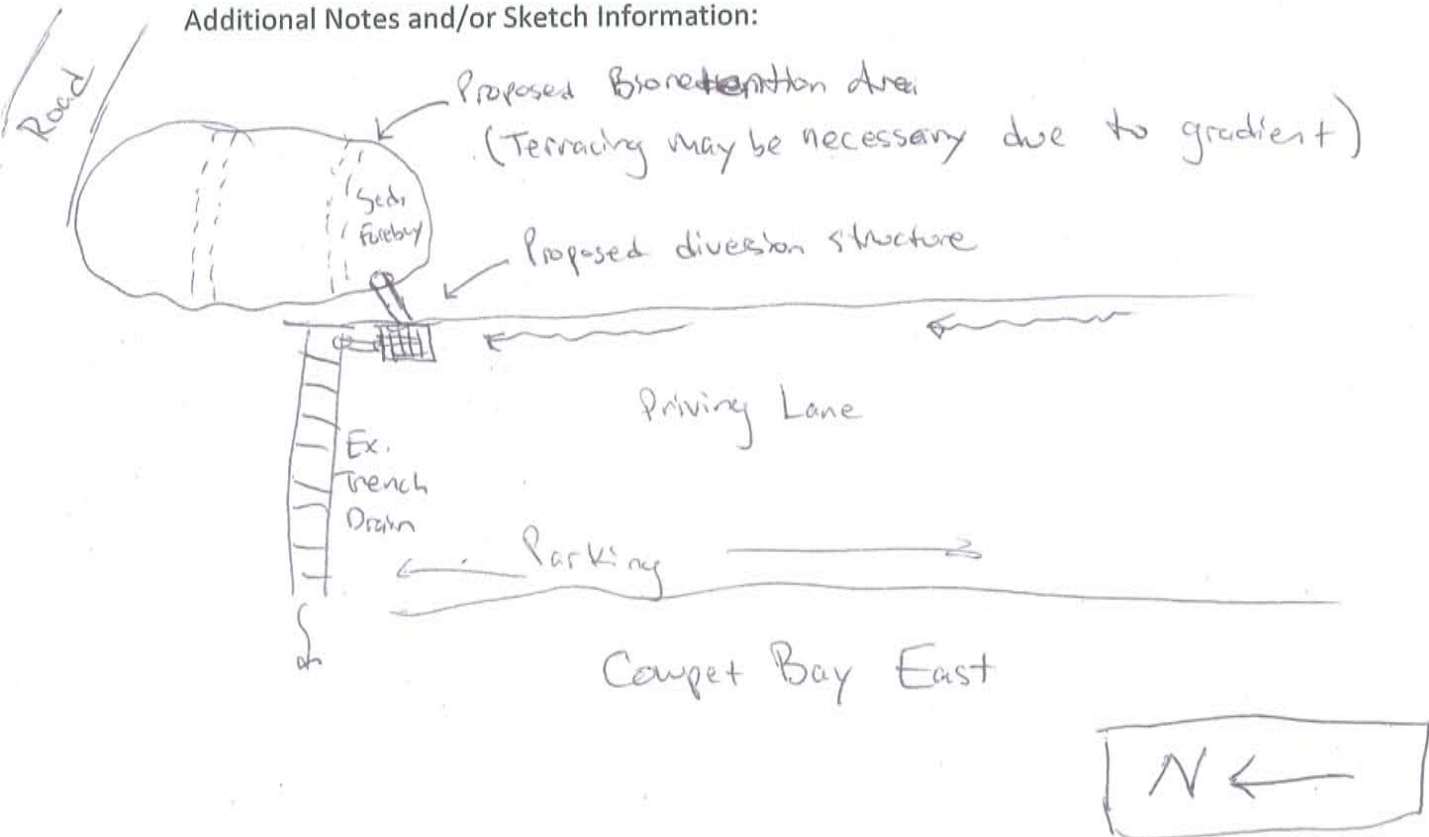 Additional Notes and/or Sketch Information:
Road
Proposed Bioretention Area
(Terracing may be necessary due to gradient)
Sed.
Forebay
Proposed diversion structure
Driving Lane
Ex.
Trench
Drain
Parking
Cowpet Bay East
N